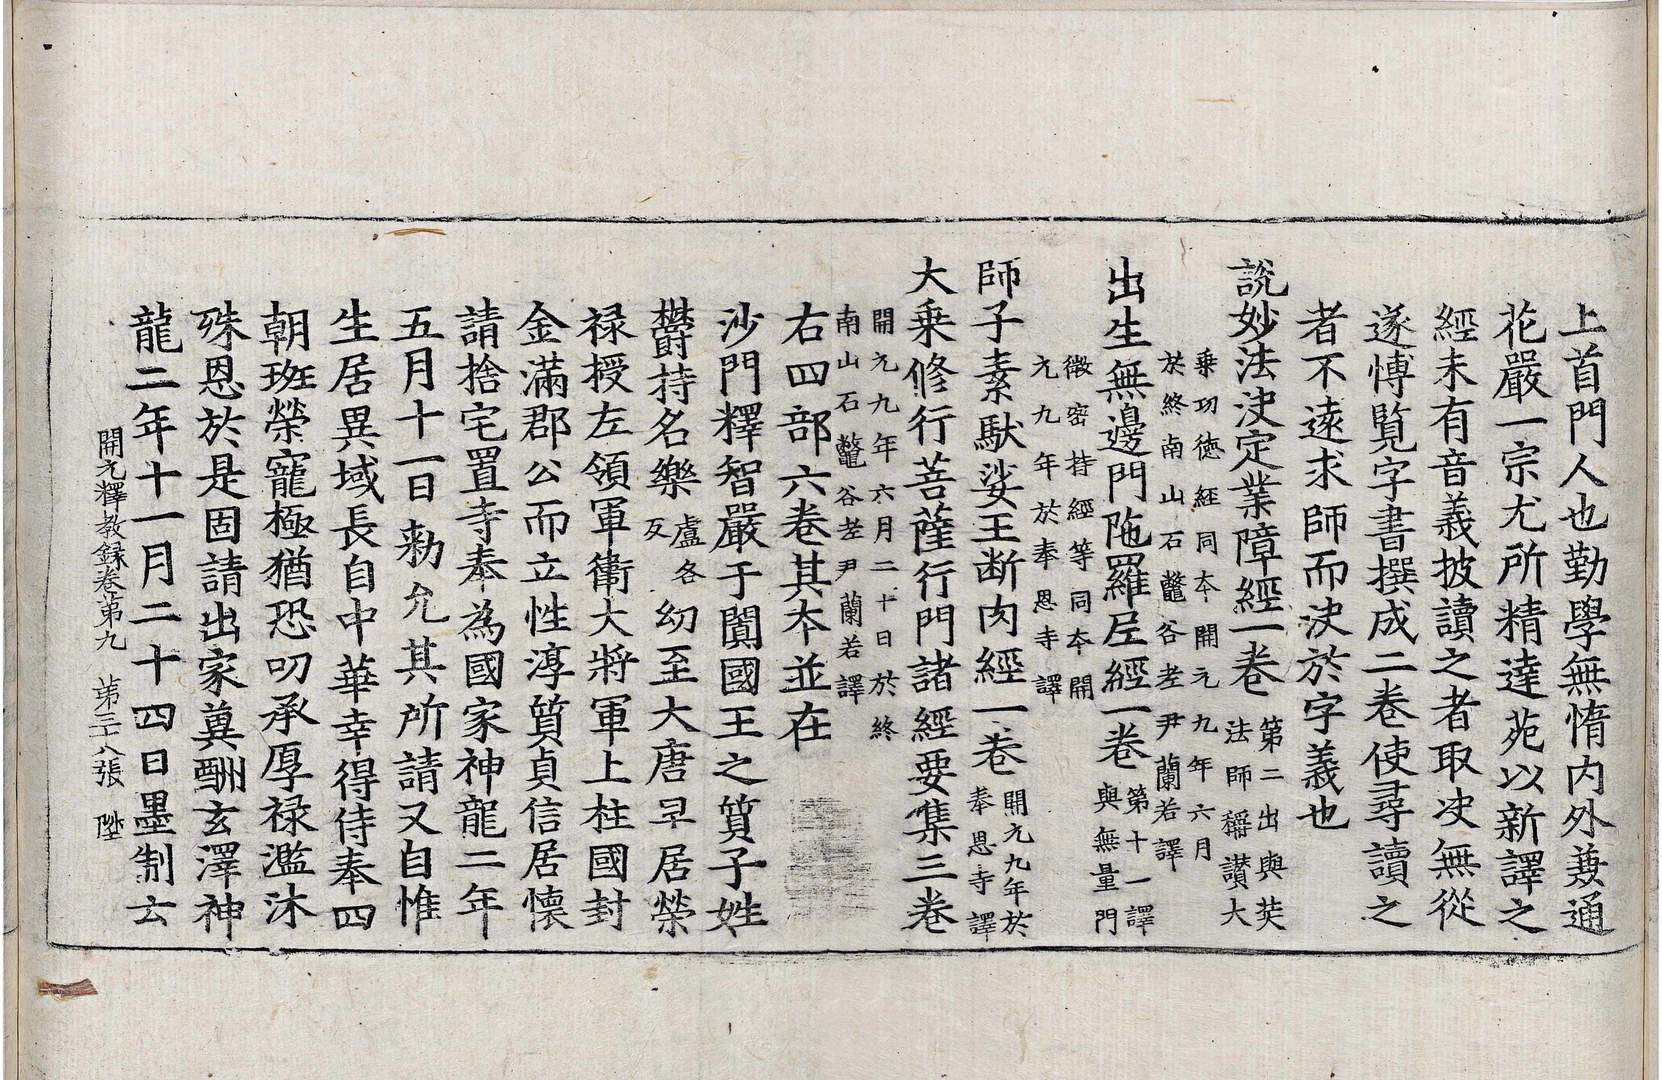 上首門人也勤學無惰内外兼通
花嚴一宗尤所精達苑以新譯之
經未有音義披讀之者取决無從
遂愽覧字書撰成二卷使尋讀之
者不遠求師而决於字義也
說妙法决定業障經一卷第二出與奘法師稱讃大
乗功徳経同夲開元九年六月
於終南山石鼈谷差尹蘭若譯
出生無邊門陁羅尼經一卷第十一譯與無量門
微密持經等同夲開
元九年於奉恩寺譯
師子素馱娑王断肉經一卷開元九年於奉恩寺譯
大乗修行菩薩行門諸經要集三卷
開元九年六月二十日於終
南山石鼈谷差尹蘭若譯
右四部六卷其夲並在
沙門釋智嚴于闐國王之質子姓
欝持名樂盧各反幼至大唐早居榮
禄授左領軍衞大將軍上柱國封
金滿郡公而立性淳質貞信居懷
請捨宅置寺奉為國家神龍二年
五月十一日勑允其所請又自惟
生居異域長自中華幸得侍奉四
朝班榮寵極猶恐叨承厚禄濫沐
殊恩於是固請出家冀酬玄澤神
龍二年十一月二十四日墨制云
開元釋教録卷第九　第三十八張　陞